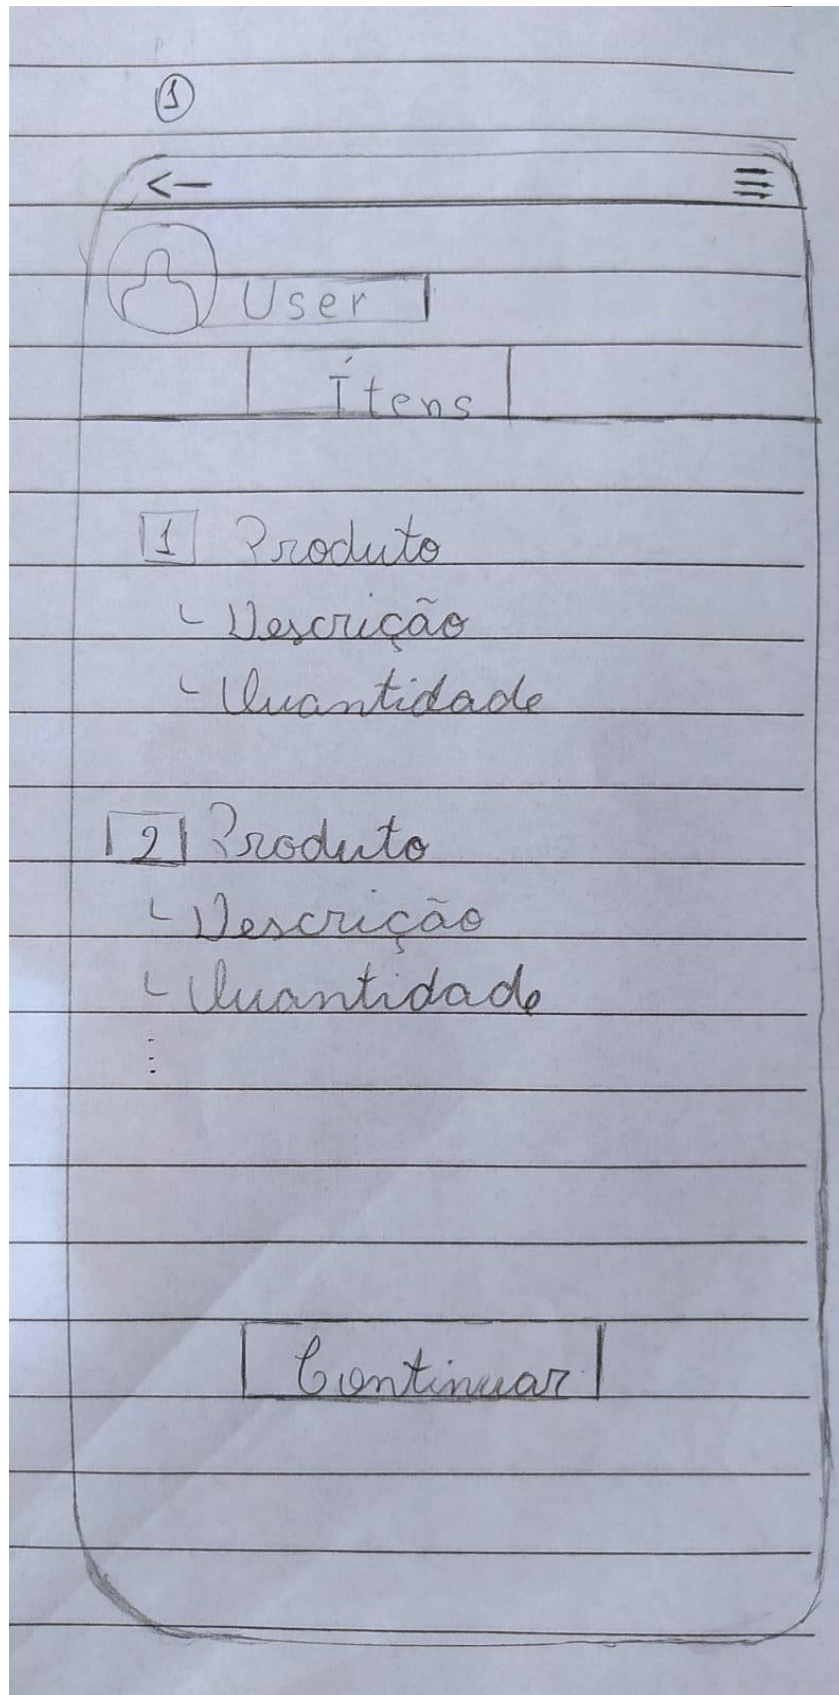 1
User
Ítens
1 Produto
Descrição
Quantidade
2 Produto
Descrição
Quantidade
⋮
Continuar